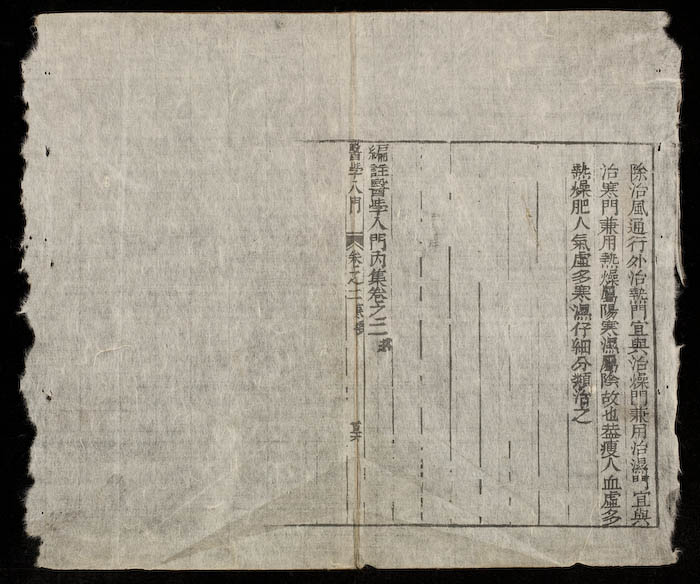 除治風通行外治熱門宜與治燥門兼用治濕門宜與
治寒門兼用熱燥屬陽寒濕屬陰故也葢瘦人血虛多
熱燥肥人氣虛多寒濕仔細分類治之
編註醫學入門內集卷之二終
醫學入門 卷之二